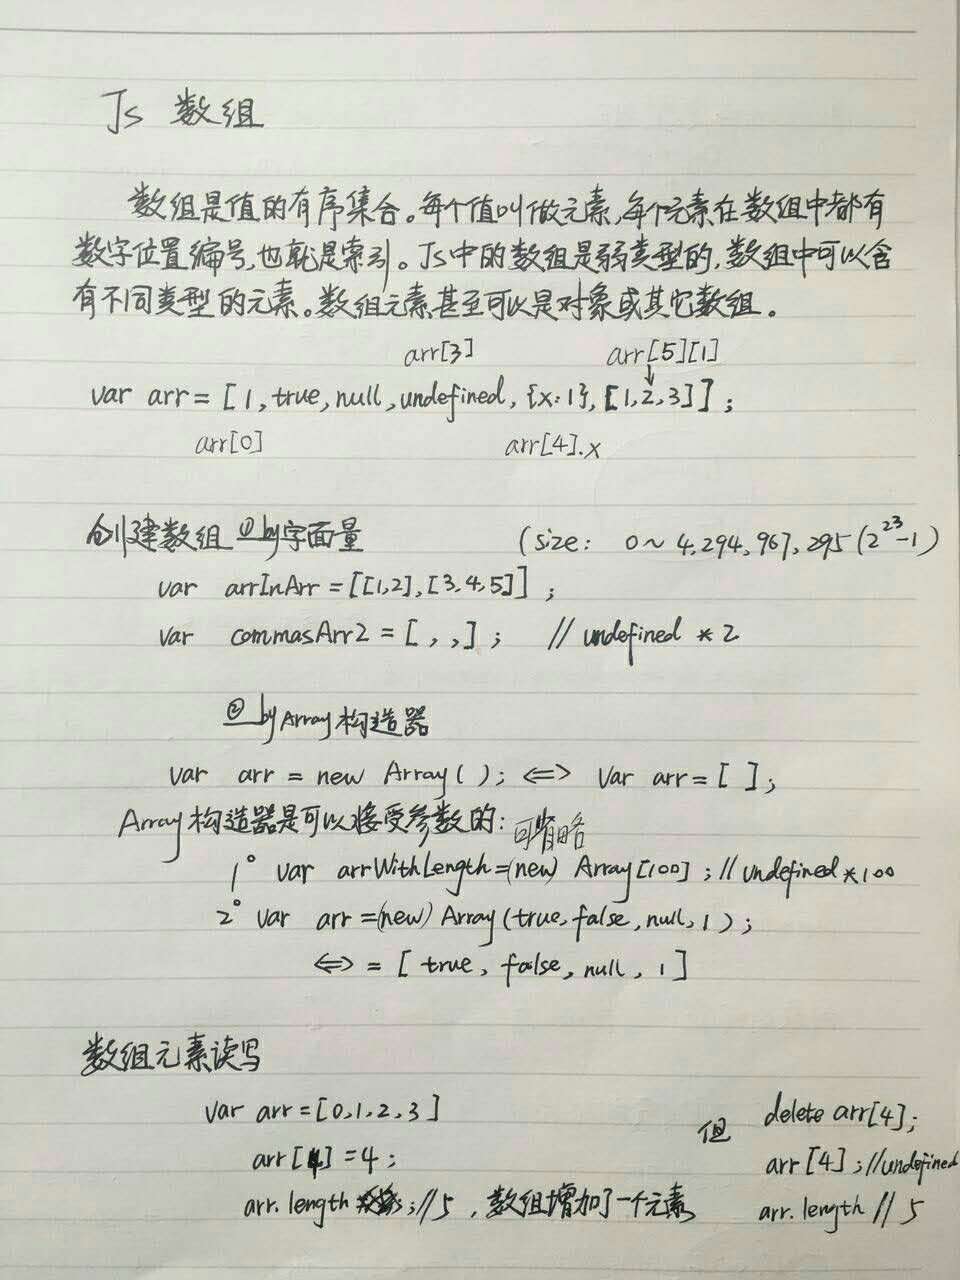 Js 数组
数组是值的有序集合。每个值叫做元素,每个元素在数组中都有
数字位置编号,也就是索引。Js中的数组是弱类型的,数组中可以含
有不同类型的元素。数组元素甚至可以是对象或其它数组。
arr[3] arr[5][1]
var arr = [1, true, null, undefined, {x:1}, [1,2,3]];
arr[0] arr[4].x
创建数组 ① by字面量 (size: 0~4,294,967,295(2^23-1)
var arrInArr = [[1,2],[3,4,5]];
var commasArr2 = [ , , ]; // undefined * 2
② by Array构造器
var arr = new Array(); <=> Var arr = [ ];
Array构造器是可以接受参数的: 可省略
1° var arrWithLength = (new) Array[100]; // undefined * 100
2° var arr = (new) Array(true, false, null, 1);
<=> = [ true, false, null, 1 ]
数组元素读写
var arr = [0,1,2,3] 但 delete arr[4];
arr[4] = 4; arr[4]; //undefined
arr.length ; // 5 , 数组增加了一个元素 arr.length // 5